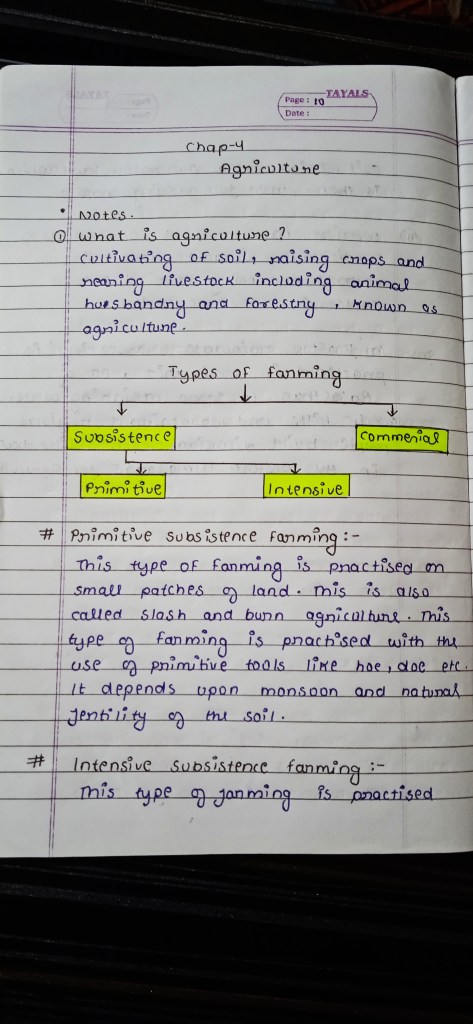 TAYALS
Page : 10
Date :
Chap-4
Agriculture
• Notes.
① What is agriculture ?
Cultivating of soil, raising crops and
rearing livestock including animal
husbandry and forestry, known as
agriculture.
Types of farming
Subsistence
Commerial
Primitive
Intensive
# Primitive subsistence farming :-
This type of farming is practised on
small patches of land. This is also
called slash and burn agriculture. This
type of farming is practised with the
use of primitive tools like hoe, doe etc.
It depends upon monsoon and natural
fertility of the soil.
# Intensive subsistence farming :-
This type of farming is practised